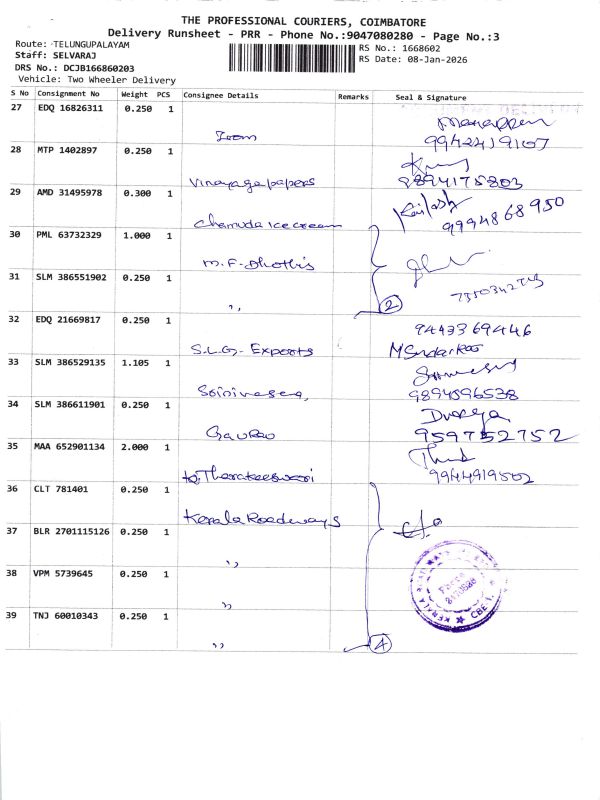 THE PROFESSIONAL COURIERS, COIMBATORE
Delivery Runsheet - PRR - Phone No.:9047080280 - Page No.:3
Route: TELUNGUPALAYAM
Staff: SELVARAJ
DRS No.: DCJB166860203
Vehicle: Two Wheeler Delivery
RS No.: 1668602
RS Date: 08-Jan-2026
S No Consignment No Weight PCS Consignee Details Remarks Seal & Signature
27 EDQ 16826311 0.250 1
9942419107
28 MTP 1402897 0.250 1
Vinayaga papers 9894175803
29 AMD 31495978 0.300 1 Kailash
Chamuda Icecream 9994868950
30 PML 63732329 1.000 1
M.F-Dhothis
31 SLM 386551902 0.250 1
,, 2 7350342743
32 EDQ 21669817 0.250 1 9443369446
S.L.G. Exports
33 SLM 386529135 1.105 1
9894596538
34 SLM 386611901 0.250 1 Durga
Gaurao 9597752752
35 MAA 652901134 2.000 1
9944919502
36 CLT 781401 0.250 1
Kerala Roadways
37 BLR 2701115126 0.250 1
,,
38 VPM 5739645 0.250 1
,,
39 TNJ 60010343 0.250 1
,, 4